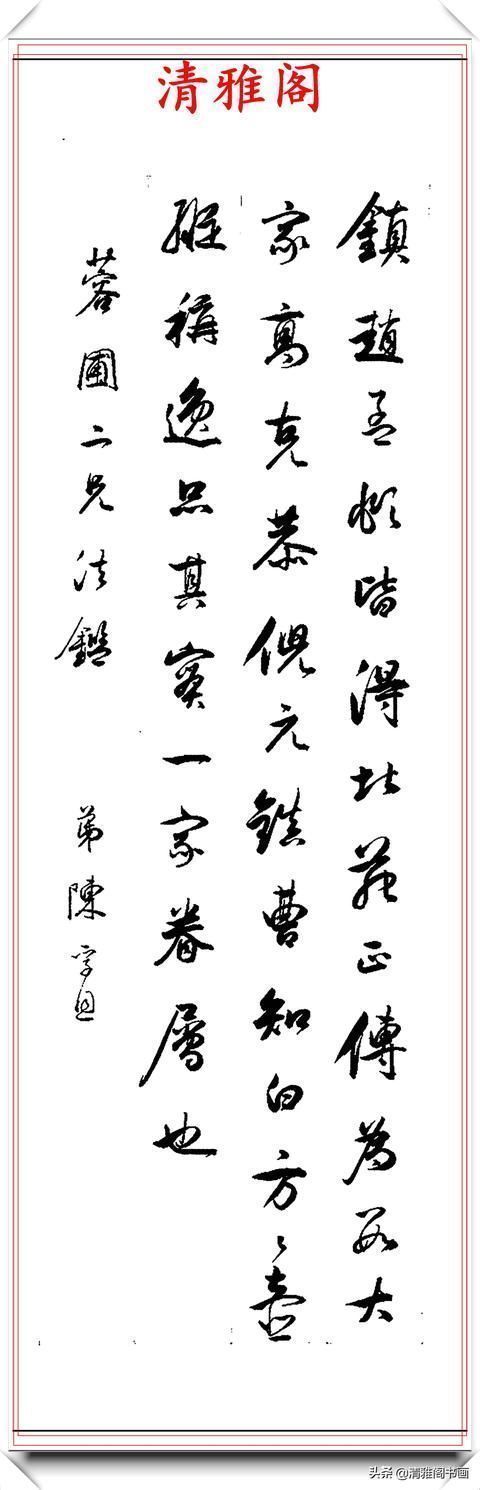 清雅阁
鎮趙孟頫皆得北苑正傳為大
家高克恭倪元鎮曹知白方々壺
縱稱逸品其實一家眷屬也
蓉圃二兄法鑑 弟陳孚恩
头条 @清雅阁书画